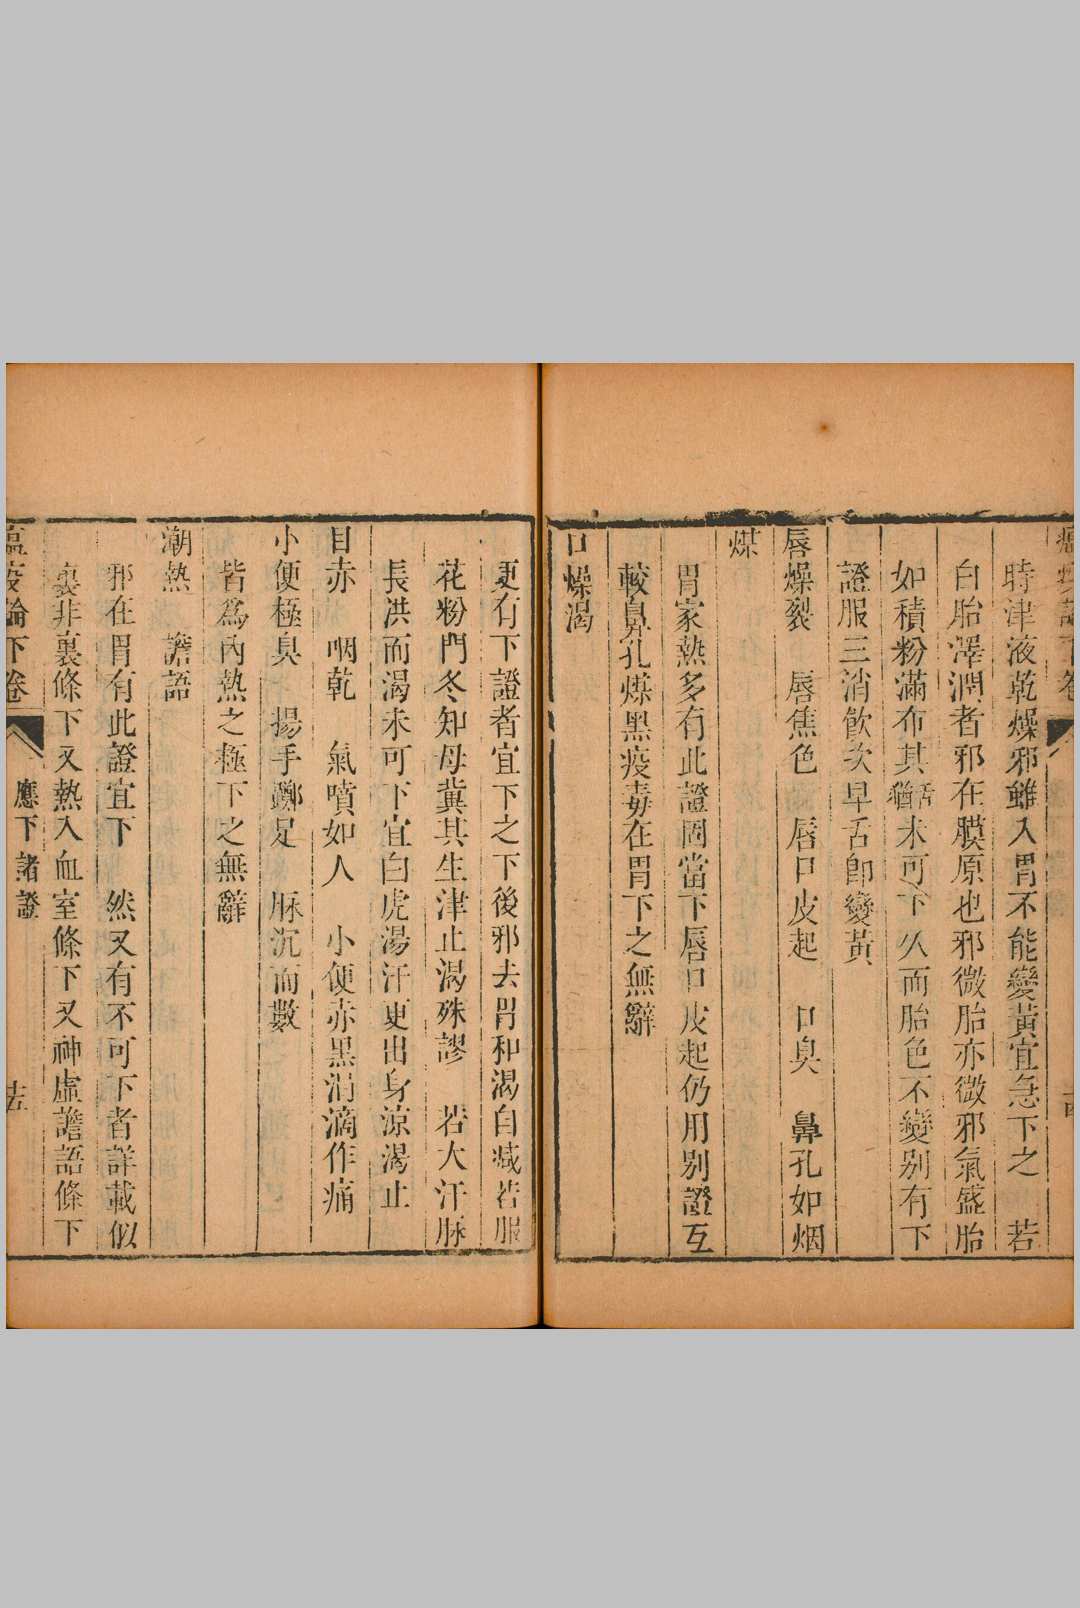 時津液乾燥邪雖入胃不能變黃宜急下之　若
白胎澤潤者邪在膜原也邪微胎亦微邪氣盛胎
如積粉滿布其舌猶未可下久而胎色不變别有下
證服三消飲次早舌即變黃
唇燥裂　唇焦色　唇口皮起　口臭　鼻孔如烟
煤
胃家熱多有此證固當下唇口皮起仍用别證互
較鼻孔煤黑疫毒在胃下之無辭
口燥渴
更有下證者宜下之下後邪去胃和渴自減若服
花粉門冬知母冀其生津止渴殊謬　若大汗脉
長洪而渴未可下宜白虎湯汗更出身涼渴止
目赤　咽乾　氣噴如人　小便赤黑涓滴作痛
小便極臭　揚手躑足　脉沉而數
皆爲內熱之極下之無辭
潮熱　譫語
邪在胃有此證宜下　然又有不可下者詳載似
裏非裏條下又熱入血室條下又神虛譫語條下
瘟疫論下卷
應下諸證